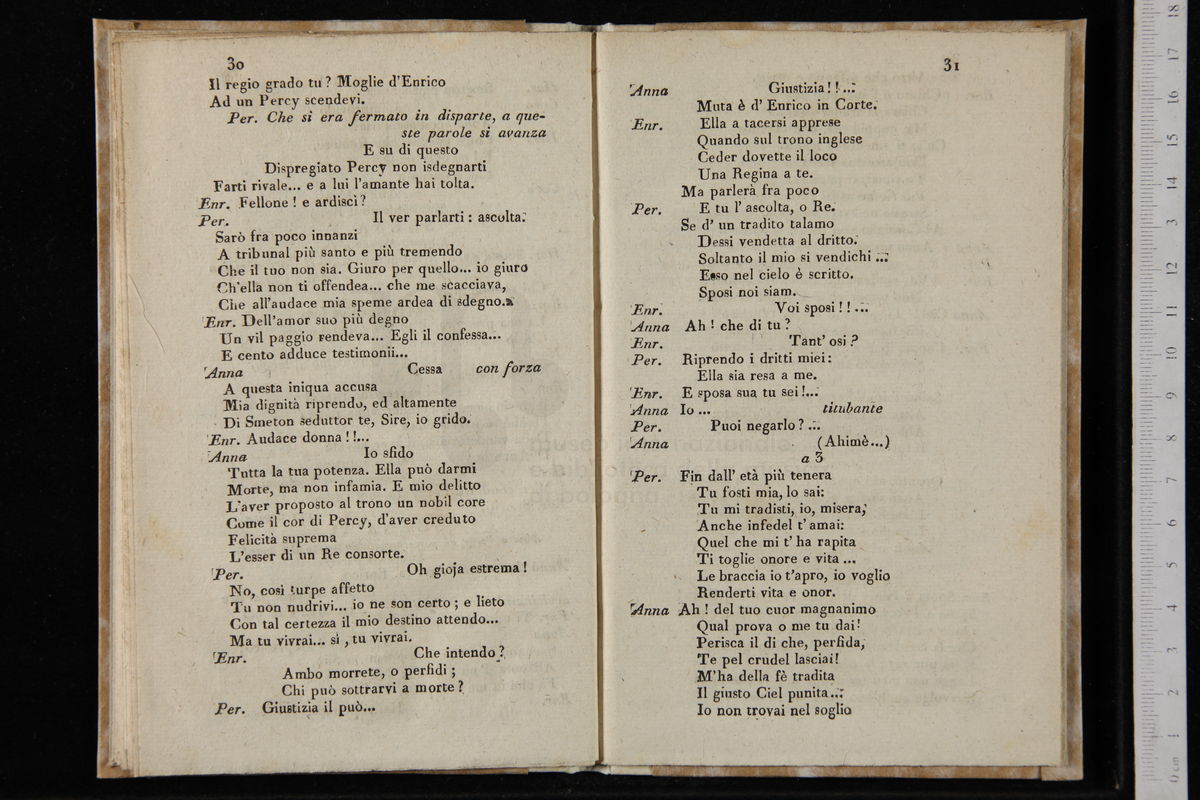 30
Il regio grado tu? Moglie d'Enrico
Ad un Percy scendevi.
Per. Che si era fermato in disparte, a que-
ste parole si avanza
E su di questo
Dispregiato Percy non isdegnarti
Farti rivale... e a lui l'amante hai tolta.
Enr. Fellone! e ardisci?
Per. Il ver parlarti: ascolta.
Sarò fra poco innanzi
A tribunal più santo e più tremendo
Che il tuo non sia. Giuro per quello... io giuro
Ch'ella non ti offendea... che me scacciava,
Che all'audace mia speme ardea di sdegno.
Enr. Dell'amor suo più degno
Un vil paggio rendeva... Egli il confessa...
E cento adduce testimonii...
Anna Cessa con forza
A questa iniqua accusa
Mia dignità riprendo, ed altamente
Di Smeton seduttor te, Sire, io grido.
Enr. Audace donna!!...
Anna Io sfido
Tutta la tua potenza. Ella può darmi
Morte, ma non infamia. E mio delitto
L'aver proposto al trono un nobil core
Come il cor di Percy, d'aver creduto
Felicità suprema
L'esser di un Re consorte.
Per. Oh gioja estrema!
No, così turpe affetto
Tu non nudrivi... io ne son certo; e lieto
Con tal certezza il mio destino attendo...
Ma tu vivrai... sì, tu vivrai.
Enr. Che intendo?
Ambo morrete, o perfidi;
Chi può sottrarvi a morte?
Per. Giustizia il può...
31
Anna Giustizia!!...
Muta è d'Enrico in Corte.
Enr. Ella a tacersi apprese
Quando sul trono inglese
Ceder dovette il loco
Una Regina a te.
Ma parlerà fra poco
Per. E tu l'ascolta, o Re.
Se d'un tradito talamo
Dessi vendetta al dritto.
Soltanto il mio si vendichi...
Esso nel cielo è scritto.
Sposi noi siam.
Enr. Voi sposi!!...
Anna Ah! che di tu?
Enr. Tant'osi?
Per. Riprendo i dritti miei:
Ella sia resa a me.
Enr. E sposa sua tu sei!...
Anna Io... titubante
Per. Puoi negarlo?...
Anna (Ahimè...)
a 3
Per. Fin dall'età più tenera
Tu fosti mia, lo sai:
Tu mi tradisti, io, misera,
Anche infedel t'amai:
Quel che mi t'ha rapita
Ti toglie onore e vita...
Le braccia io t'apro, io voglio
Renderti vita e onor.
Anna Ah! del tuo cuor magnanimo
Qual prova o me tu dai!
Perisca il di che, perfida,
Te pel crudel lasciai!
M'ha della fè tradita
Il giusto Ciel punita...
Io non trovai nel soglio
0 cm 1 2 3 4 5 6 7 8 9 10 11 12 13 14 15 16 17 18